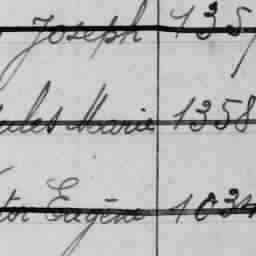 Joseph 135
ales Marie 1358
tor Eugène 1634